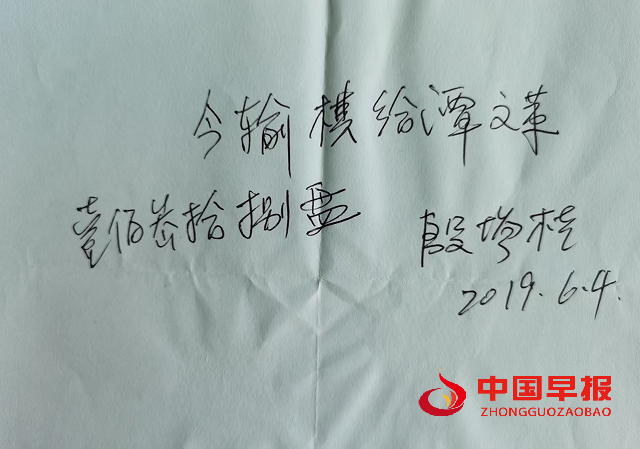 今输棋给潭文革
壹佰叁拾捌盘 殷增桂
2019.6.4.
中国早报
ZHONGGUOZAOBAO